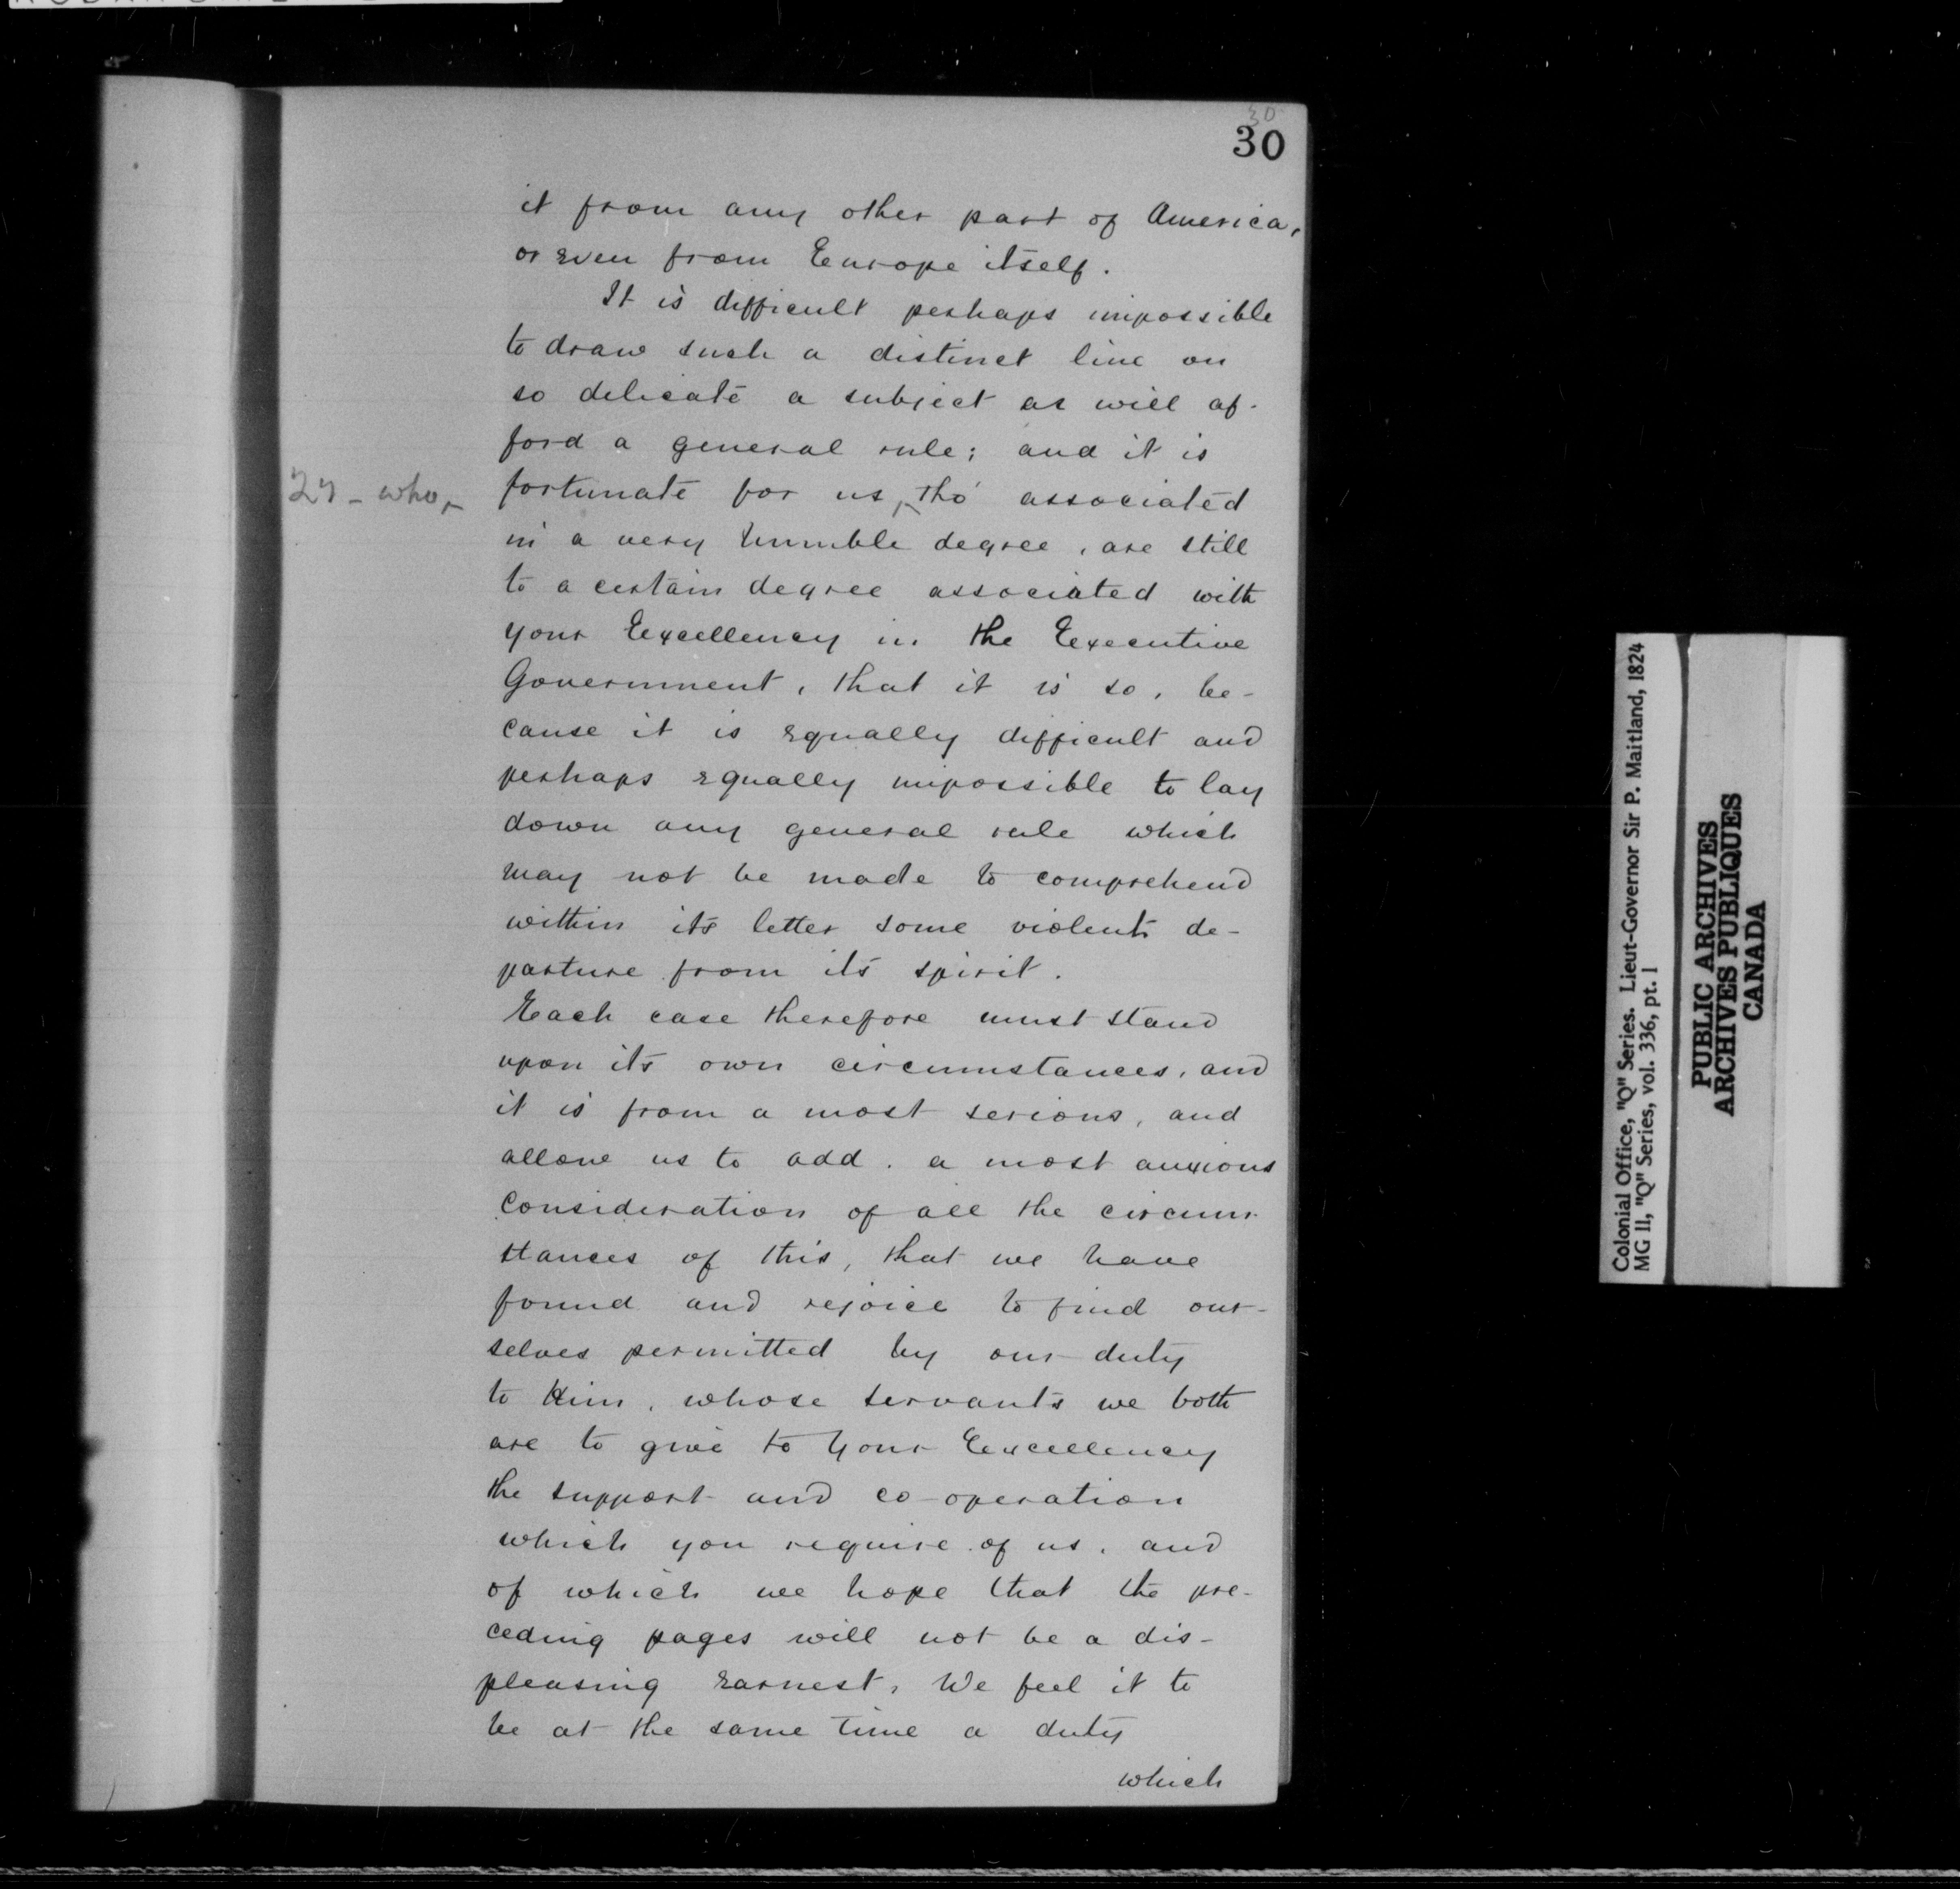 30
30
it from any other part of America,
or even from Europe itself.
It is difficult perhaps impossible
to draw such a distinct line on
so delicate a subject as will af-
ford a general rule; and it is
who,
fortunate for us, tho' associated
in a very humble degree, are still
to a certain degree associated with
your Excellency in the Executive
Government, that it is so, be-
cause it is equally difficult and
perhaps equally impossible to lay
down any general rule which
may not be made to comprehend
within its letter some violent de-
parture from its spirit.
Each case therefore must stand
upon its own circumstances, and
it is from a most serious, and
allow us to add, a most anxious
consideration of all the circum-
stances of this, that we have
found and rejoice to find our-
selves permitted by our duty
to Him, whose servants we both
are to give to Your Excellency
the support and co-operation
which you require of us, and
of which we hope that the pre-
ceding pages will not be a dis-
pleasing earnest, We feel it to
be at the same time a duty
which
Colonial Office, "Q" Series. Lieut-Governor Sir P. Maitland, 1824
MG II, "Q" Series, vol. 336, pt. I
PUBLIC ARCHIVES
ARCHIVES PUBLIQUES
CANADA